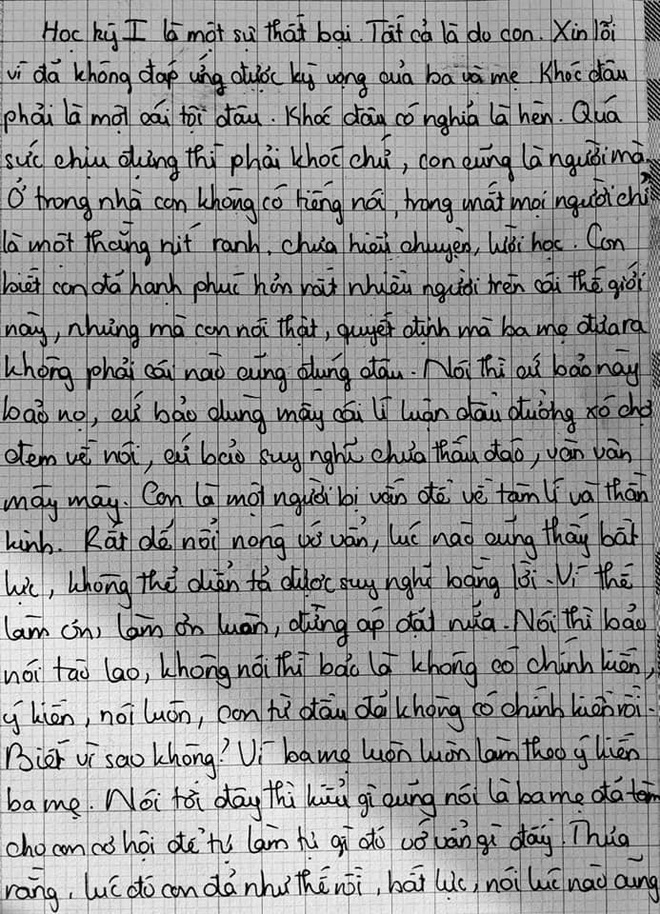 Học kỳ I là một sự thất bại. Tất cả là do con. Xin lỗi
vì đã không đáp ứng được kỳ vọng của ba và mẹ. Khóc đâu
phải là một cái tội đâu. Khóc đâu có nghĩa là hèn. Quá
sức chịu đựng thì phải khóc chứ, con cũng là người mà.
Ở trong nhà con không có tiếng nói, trong mắt mọi người chỉ
là một thằng nít ranh, chưa hiểu chuyện, lười học. Con
biết con đã hạnh phúc hơn rất nhiều người trên cái thế giới
này, nhưng mà con nói thật, quyết định mà ba mẹ đưa ra
không phải cái nào cũng đúng đâu. Nói thì cứ bảo này
bảo nọ, cứ bảo dùng mấy cái lí luận đầu đường xó chợ
đem về nói, cứ bảo suy nghĩ chưa thấu đáo, vân vân
mây mây. Con là một người bị vấn đề về tâm lí và thần
kinh. Rất dễ nổi nóng vớ vẩn, lúc nào cũng thấy bất
lực, không thể diễn tả được suy nghĩ bằng lời. Vì thế
làm ơn, làm ơn luôn, đừng áp đặt nữa. Nói thì bảo
nói tào lao, không nói thì bảo là không có chính kiến,
ý kiến, nói luôn, con từ đầu đã không có chính kiến rồi.
Biết vì sao không? Vì ba mẹ luôn luôn làm theo ý kiến
ba mẹ. Nói tới đây thì kiểu gì cũng nói là ba mẹ đã
cho con cơ hội để tự làm tự gì đó vớ vẩn gì đấy. Thưa
rằng, lúc đó con đã như thế rồi, bất lực, nói lúc nào cũng